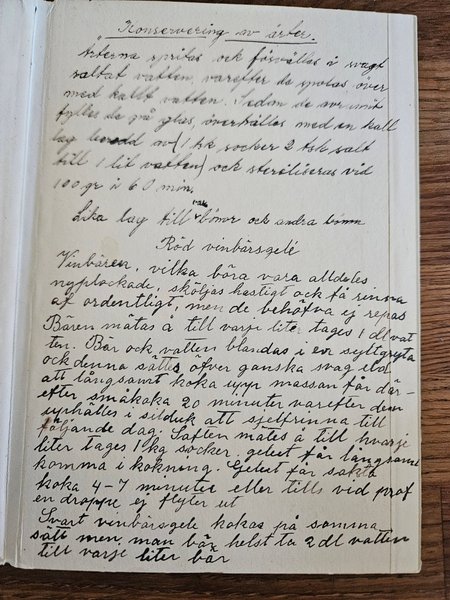 Konservering av ärter.
Ärterna spritas och förvällas i svagt
saltat vatten, varefter de spolas över
med kallt vatten. Sedan de avrunnit
fylles de på glas, överhälles med en kall
lag beredd av (1 tsk socker 2 tsk salt
till 1 lit vatten) och steriliseras vid
100 gr i 60 min.
Lika lag till vax bönor och andra bönor
Röd vinbärsgelé
Vinbären, vilka böra vara alldeles
nyplockade, sköljas hastigt och få rinna
af ordentligt, men de behöfva ej repas
Bären mätas å till varje liter tages 1 dl vat
ten. Bär och vatten blandas i en syltgryta
och denna sättes öfver ganska svag eld
att långsamt koka upp massan får där-
efter småkoka 20 minuter varefter den
uphälles i silduk att sjelfrinna till
följande dag. Saften mätes å till hvarje
liter tages 1 kg socker. geleet får långsamt
komma i kokning. Geleet får sakta
koka 4-7 minuter eller tills vid prof
en droppe ej flyter ut
Svart vinbärsgele kokas på samma
sätt men man bär helst ta 2 dl vatten
till varje liter bär